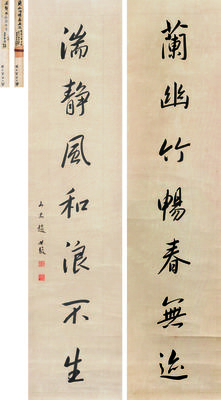 蘭幽竹暢春無迹
湍靜風和浪不生